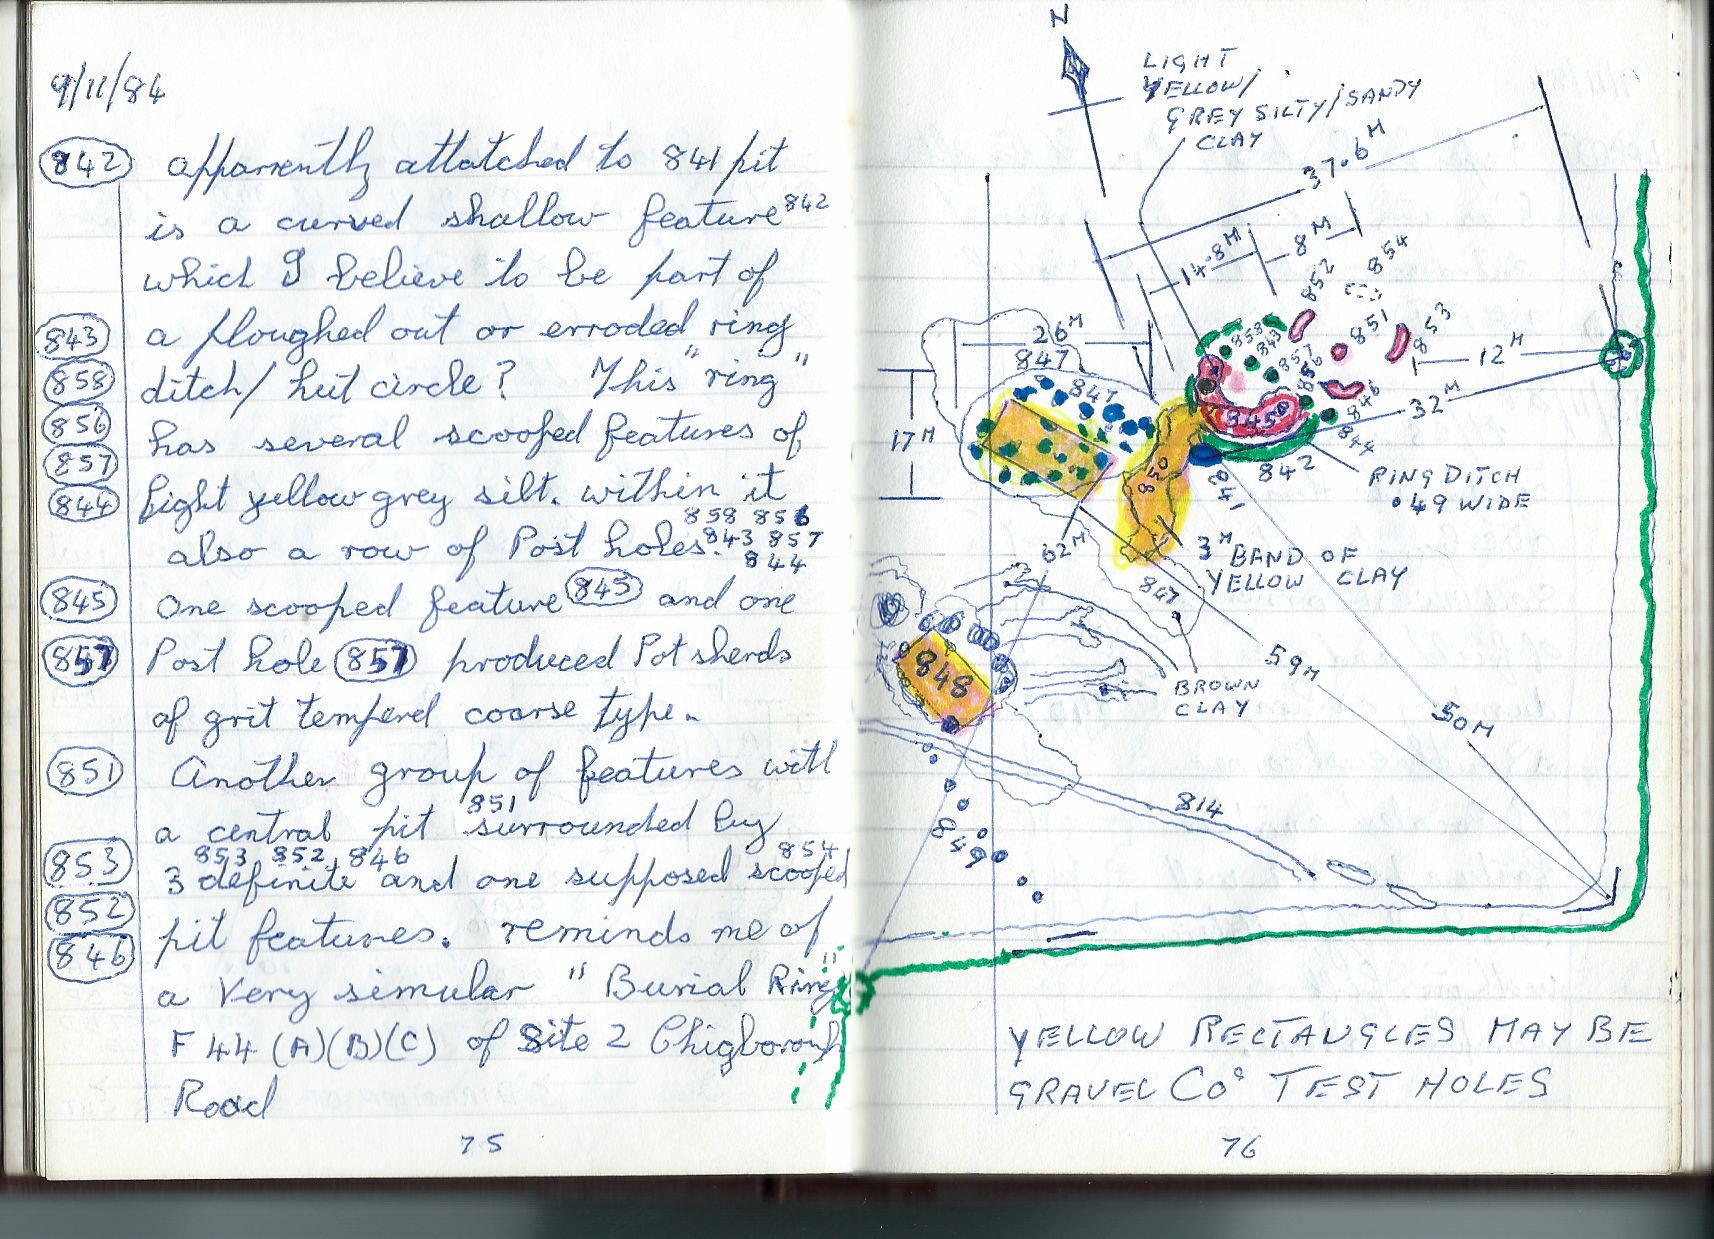 9/11/84
842 apparrently attatched to 841 pit
is a curved shallow feature 842
which I believe to be part of
843 a ploughed out or erroded ring
858 ditch/ hut circle? This "ring"
856 has several scooped features of
857
844 light yellow grey silt. within it
858 856
also a row of Post holes. 843 857
844
845 One scooped feature 845 and one
857 Post hole 857 produced Pot sherds
of grit temperd coarse type.
851 Another group of features with
a central pit 851 surrounded by
853 852 846 854
853 3 definite and one supposed scooped
852
846 pit features. reminds me of
a Very simular "Burial Ring"
F 44 (A)(B)(C) of Site 2 Chigborough
Road
75
N
LIGHT
YELLOW/
GREY SILTY/SANDY
CLAY
37.6M
14.8M
8M
852
854
26M
847
847
858
843
857
856
851
853
12M
32M
17M
845
846
844
842
841
850
RING DITCH
.49 WIDE
62M
3M BAND OF
YELLOW CLAY
847
59M
848
BROWN
CLAY
50M
814
849
YELLOW RECTANGLES MAY BE
GRAVEL COs TEST HOLES
76